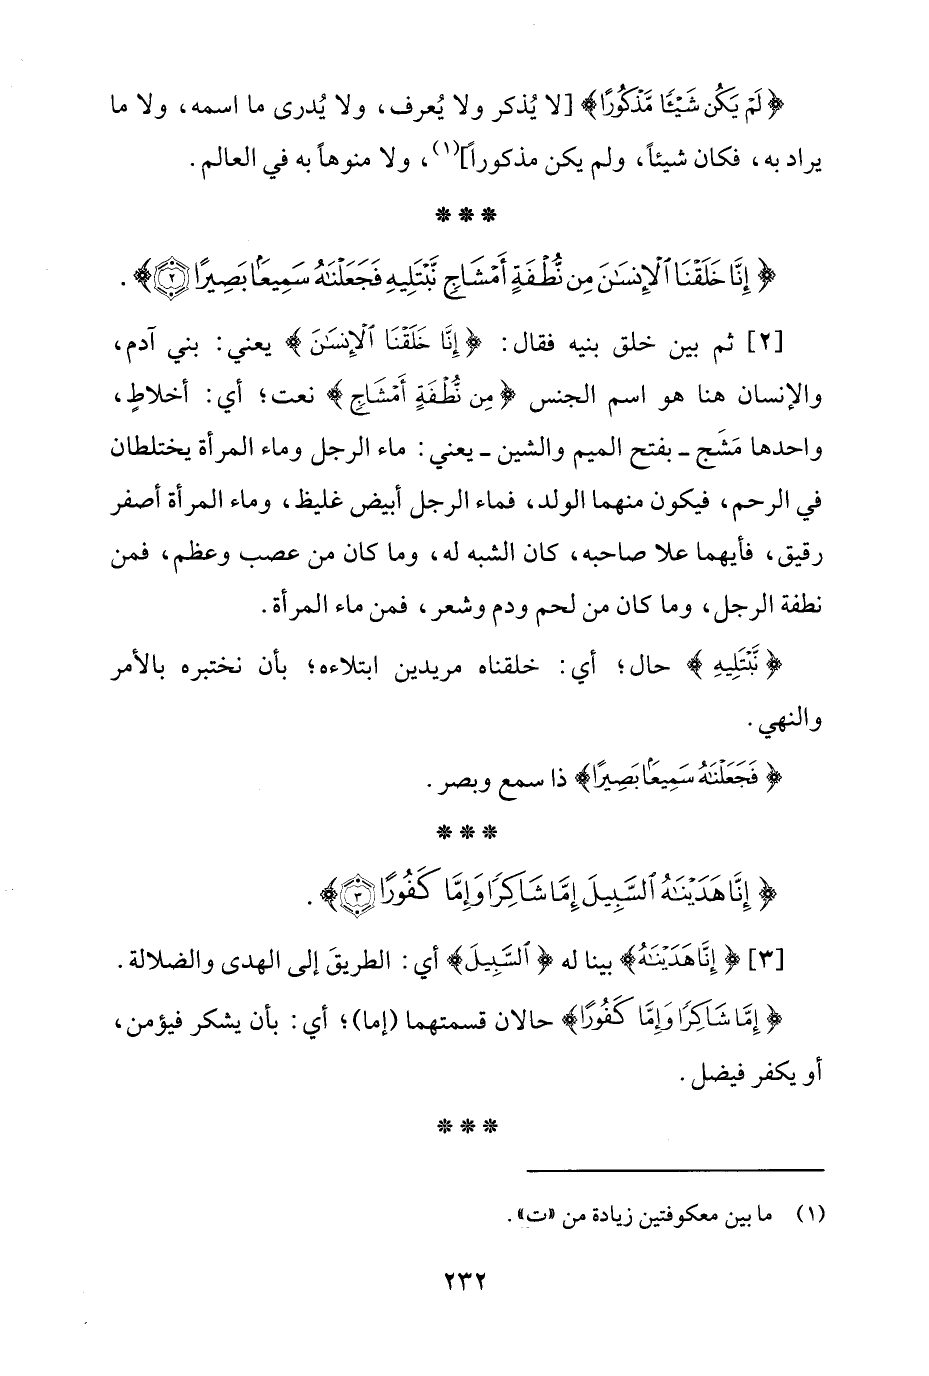 ﴿لَمْ يَكُن شَيْئًا مَّذْكُورًا﴾ [لا يُذكر ولا يُعرف، ولا يُدرى ما اسمه، ولا ما
يراد به، فكان شيئاً، ولم يكن مذكوراً](١)، ولا منوهاً به في العالم.
* * *
﴿إِنَّا خَلَقْنَا ٱلْإِنسَٰنَ مِن نُّطْفَةٍ أَمْشَاجٍ نَّبْتَلِيهِ فَجَعَلْنَٰهُ سَمِيعًۢا بَصِيرًا ٢﴾.
[٢] ثم بين خلق بنيه فقال: ﴿إِنَّا خَلَقْنَا ٱلْإِنسَٰنَ﴾ يعني: بني آدم،
والإنسان هنا هو اسم الجنس ﴿مِن نُّطْفَةٍ أَمْشَاجٍ﴾ نعت؛ أي: أخلاطٍ،
واحدها مَشَج ـ بفتح الميم والشين ـ يعني: ماء الرجل وماء المرأة يختلطان
في الرحم، فيكون منهما الولد، فماء الرجل أبيض غليظ، وماء المرأة أصفر
رقيق، فأيهما علا صاحبه، كان الشبه له، وما كان من عصب وعظم، فمن
نطفة الرجل، وما كان من لحم ودم وشعر، فمن ماء المرأة.
﴿نَّبْتَلِيهِ﴾ حال؛ أي: خلقناه مريدين ابتلاءه؛ بأن نختبره بالأمر
والنهي.
﴿فَجَعَلْنَٰهُ سَمِيعًۢا بَصِيرًا﴾ ذا سمع وبصر.
* * *
﴿إِنَّا هَدَيْنَٰهُ ٱلسَّبِيلَ إِمَّا شَاكِرًا وَإِمَّا كَفُورًا ٣﴾.
[٣] ﴿إِنَّا هَدَيْنَٰهُ﴾ بينا له ﴿ٱلسَّبِيلَ﴾ أي: الطريقَ إلى الهدى والضلالة.
﴿إِمَّا شَاكِرًا وَإِمَّا كَفُورًا﴾ حالان قسمتهما (إما)؛ أي: بأن يشكر فيؤمن،
أو يكفر فيضل.
* * *
(١) ما بين معكوفتين زيادة من «ت».
٢٣٢